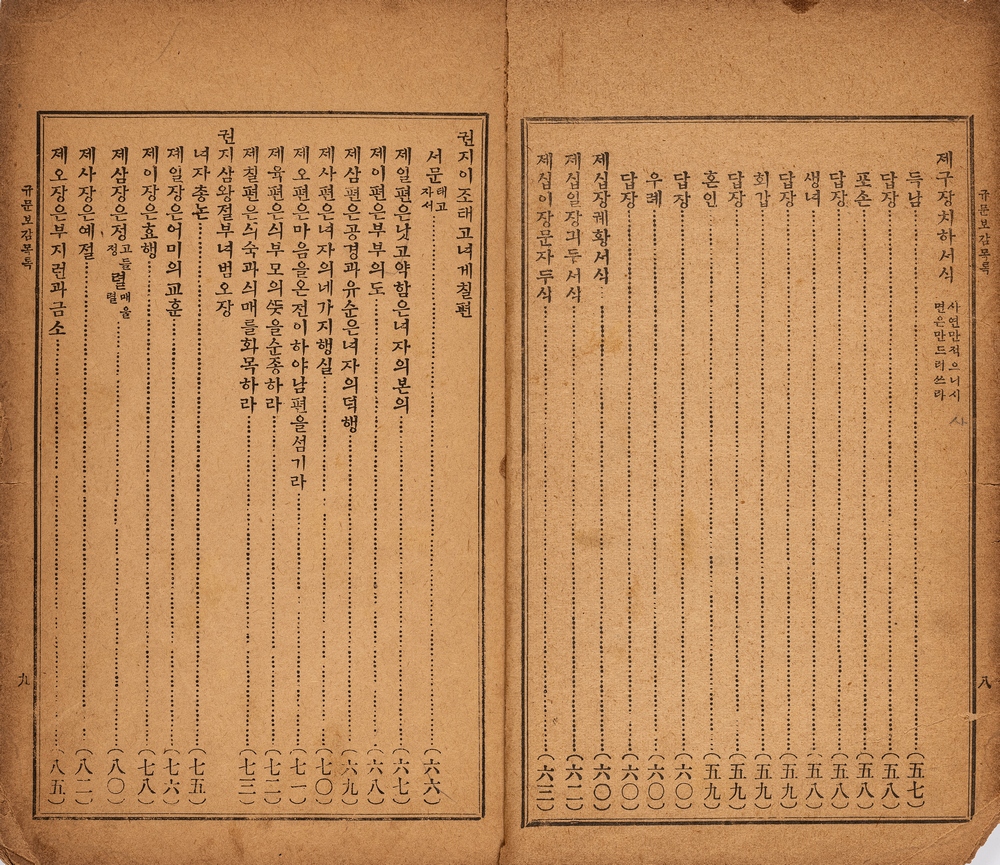 규문보감목록
八
제구장치하서식 사연만적으니시
면은만드러쓰라
득남(五七)
답장(五八)
포손(五八)
답장(五八)
생녀(五八)
답장(五九)
회갑(五九)
답장(五九)
혼인(五九)
답장(六〇)
우례(六〇)
답장(六〇)
제십장궤황서식(六〇)
제십일장긔두서식(六二)
제십이장문자두식(六三)
권지이조태고녀게칠편
서문 태고
자서(六六)
제일편은낫고약함은녀자의본의(六七)
제이편은부부의도(六八)
제삼편은공경과유순은녀자의덕행(六九)
제사편은녀자의네가지행실(七〇)
제오편은마음을온전이하야남편을섬기라(七一)
제육편은싀부모의뜻을순종하라(七二)
제칠편은싀숙과싀매를화목하라(七三)
권지삼왕절부녀범오장
녀자총논(七五)
제일장은어미의교훈(七六)
제이장은효행(七八)
제삼장은정고들렬매을
정렬(八〇)
제사장은예절(八二)
제오장은부지런과금소(八五)
규문보감목록
九